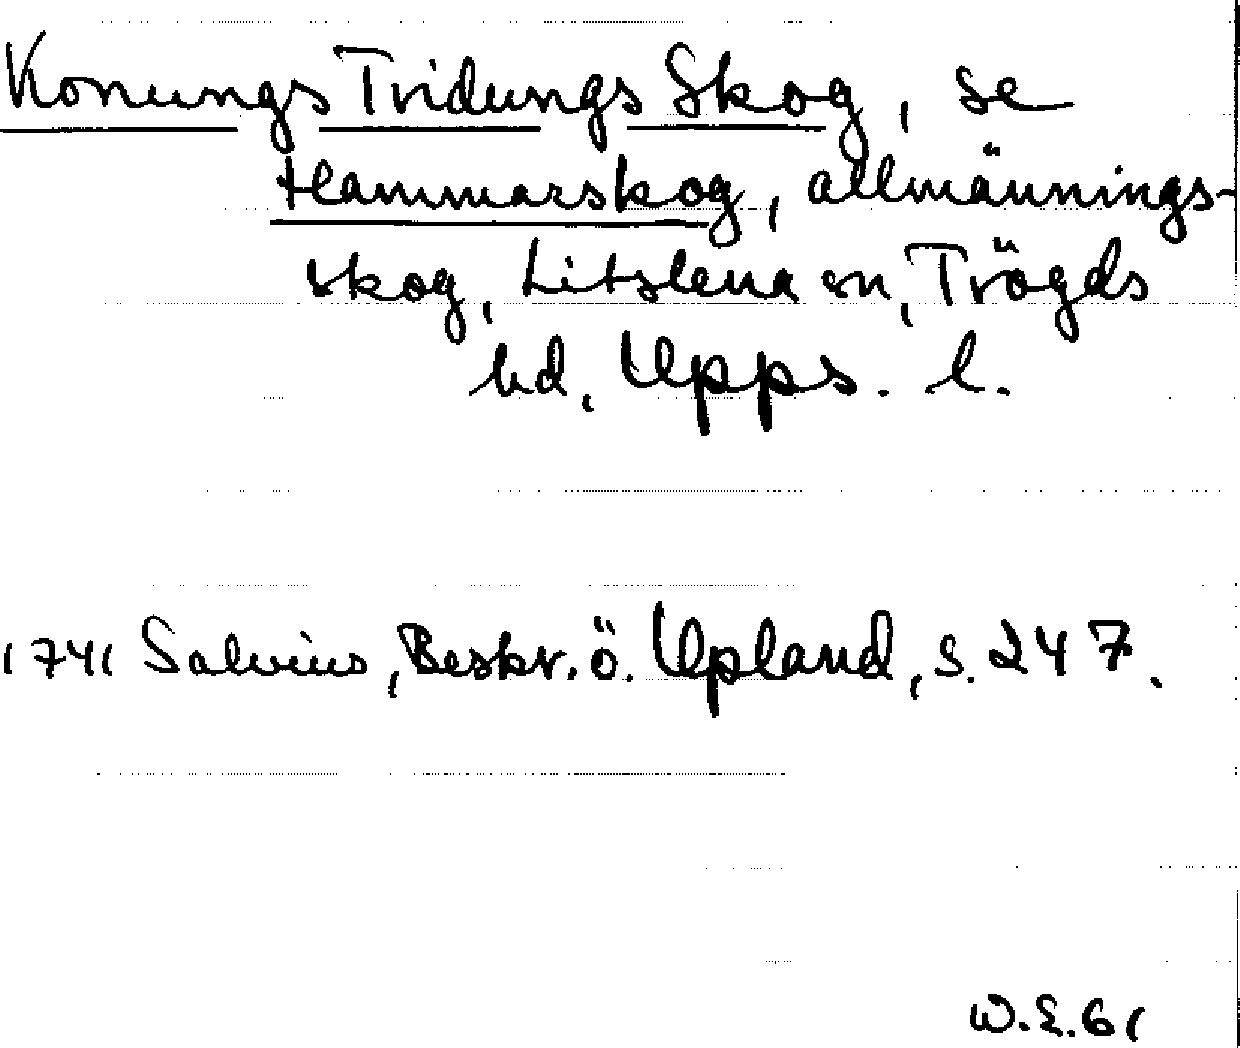 Konungs Tridungs Skog, se
Hammarskog, allmännings-
skog, Litslena sn, Trögds
hd, Upps. l.
1741 Salvius, Beskr. ö. Upland, s. 247.
W.E.61